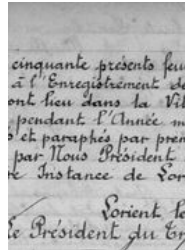 cinquante présents feu
à l'Enregistrement de
ont lieu dans la Vil
pendant l'Année m
s et paraphés par prem
par Nous Président
re Instance de Lor
Lorient, le
Le Président du Tr